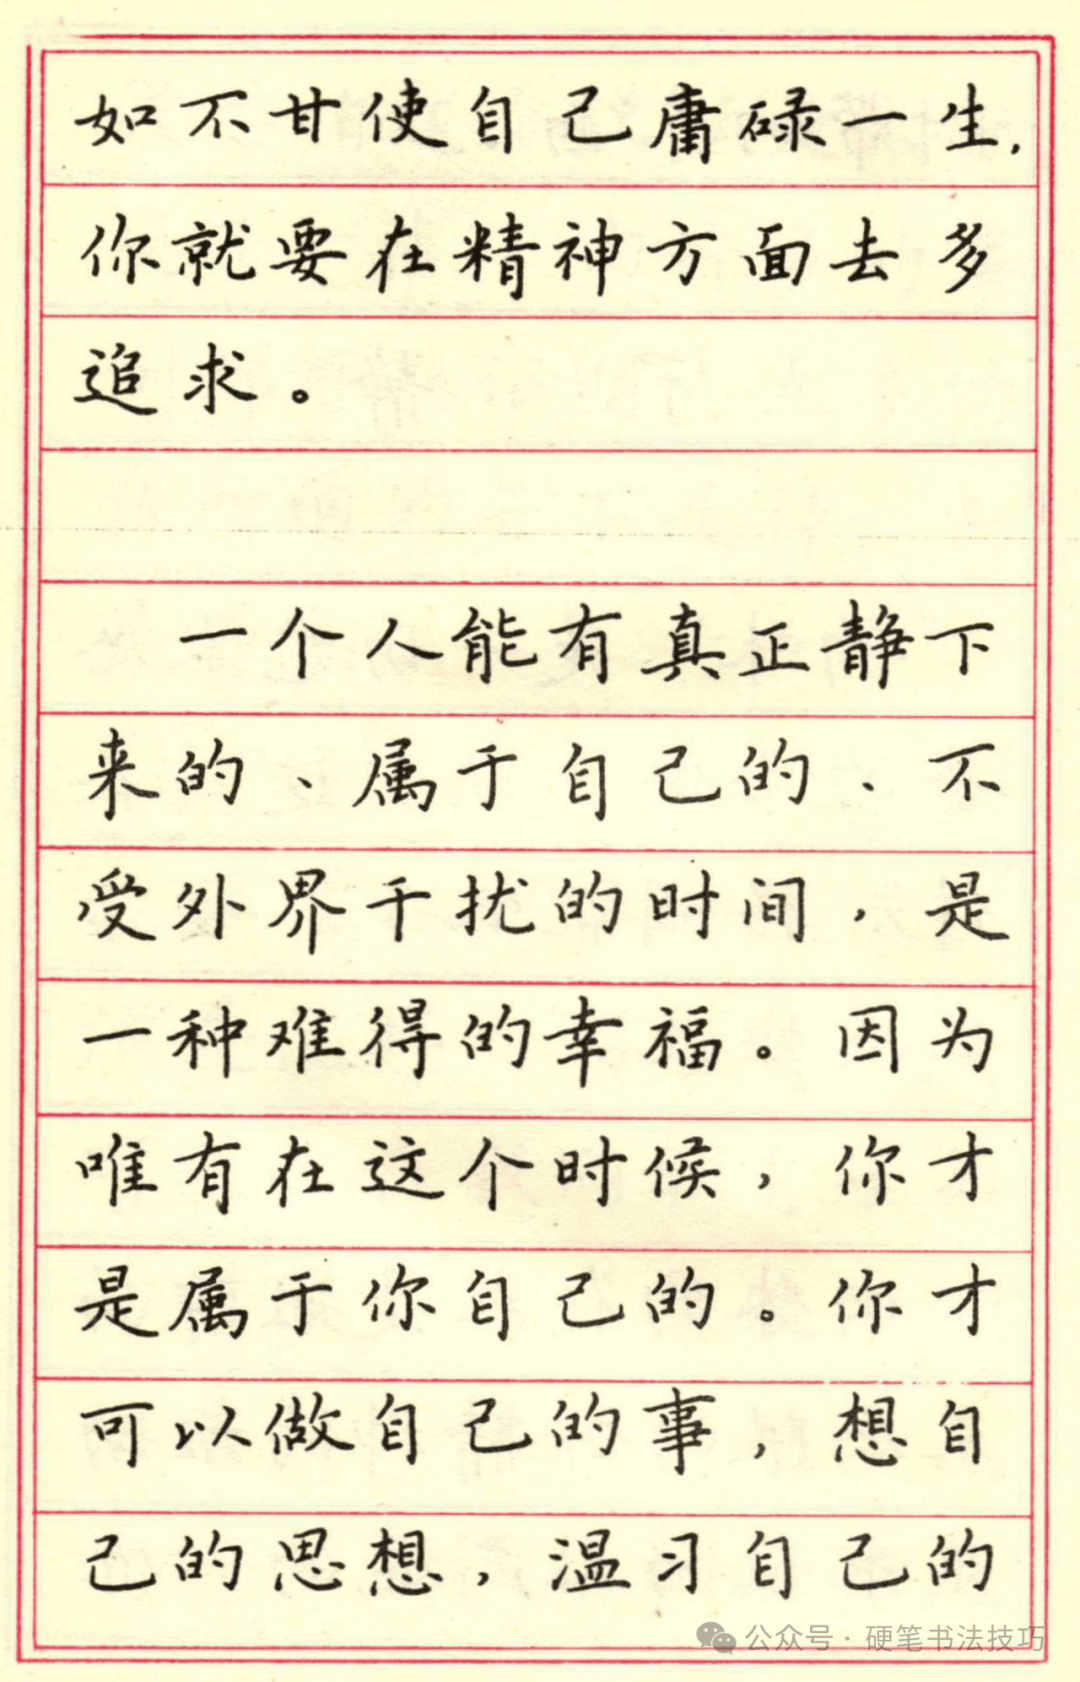 如不甘使自己庸碌一生，
你就要在精神方面去多
追求。
一个人能有真正静下
来的、属于自己的、不
受外界干扰的时间，是
一种难得的幸福。因为
唯有在这个时候，你才
是属于你自己的。你才
可以做自己的事，想自
己的思想，温习自己的
公众号·硬笔书法技巧